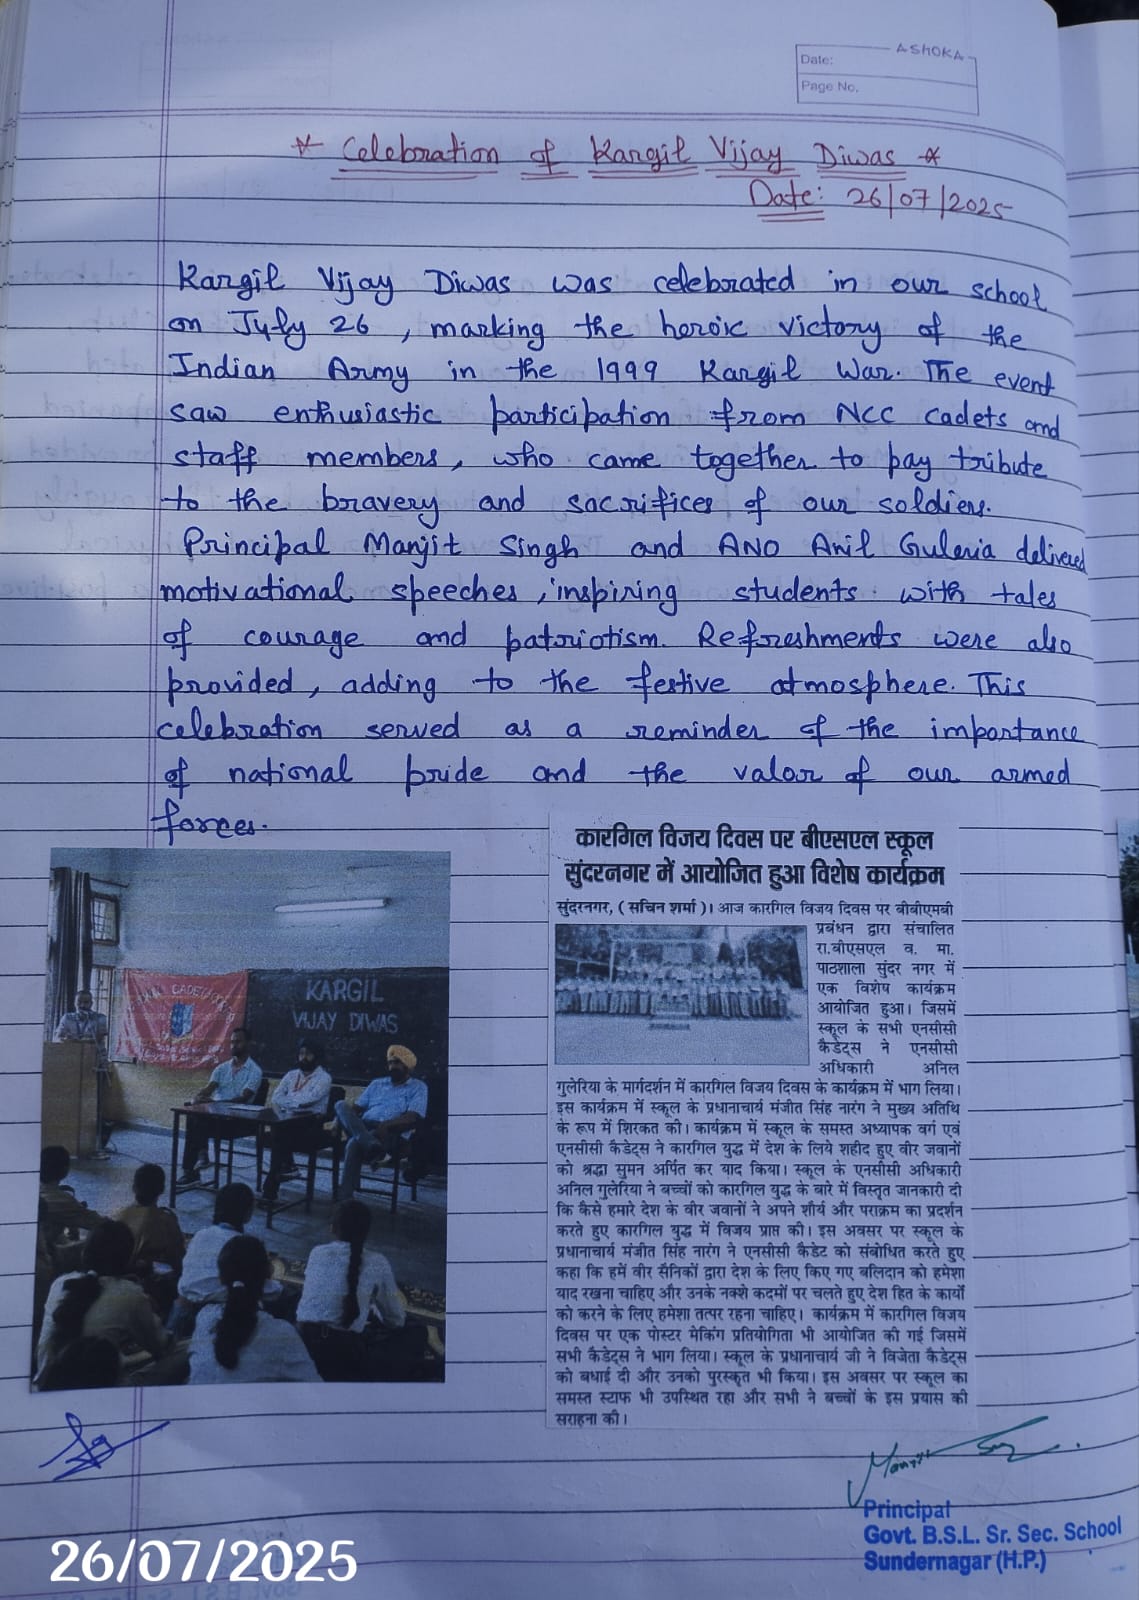 ASHOKA
Date:
Page No.
* Celebration of Kargil Vijay Diwas *
Date: 26/07/2025
Kargil Vijay Diwas was celebrated in our school
on July 26, marking the heroic victory of the
Indian Army in the 1999 Kargil War. The event
saw enthusiastic participation from NCC cadets and
staff members, who came together to pay tribute
to the bravery and sacrifices of our soldiers.
Principal Manjit Singh and ANO Anil Guleria delivered
motivational speeches, inspiring students with tales
of courage and patriotism. Refreshments were also
provided, adding to the festive atmosphere. This
celebration served as a reminder of the importance
of national pride and the valor of our armed
forces.
KARGIL
VIJAY DIWAS
2025
कारगिल विजय दिवस पर बीएसएल स्कूल
सुंदरनगर में आयोजित हुआ विशेष कार्यक्रम
सुंदरनगर, ( सचिन शर्मा )। आज कारगिल विजय दिवस पर बीबीएमबी
प्रबंधन द्वारा संचालित
रा.बीएसएल व. मा.
पाठशाला सुंदर नगर में
एक विशेष कार्यक्रम
आयोजित हुआ। जिसमें
स्कूल के सभी एनसीसी
कैडेट्स ने एनसीसी
अधिकारी अनिल
गुलेरिया के मार्गदर्शन में कारगिल विजय दिवस के कार्यक्रम में भाग लिया।
इस कार्यक्रम में स्कूल के प्रधानाचार्य मंजीत सिंह नारंग ने मुख्य अतिथि
के रूप में शिरकत की। कार्यक्रम में स्कूल के समस्त अध्यापक वर्ग एवं
एनसीसी कैडेट्स ने कारगिल युद्ध में देश के लिये शहीद हुए वीर जवानों
को श्रद्धा सुमन अर्पित कर याद किया। स्कूल के एनसीसी अधिकारी
अनिल गुलेरिया ने बच्चों को कारगिल युद्ध के बारे में विस्तृत जानकारी दी
कि कैसे हमारे देश के वीर जवानों ने अपने शौर्य और पराक्रम का प्रदर्शन
करते हुए कारगिल युद्ध में विजय प्राप्त की। इस अवसर पर स्कूल के
प्रधानाचार्य मंजीत सिंह नारंग ने एनसीसी कैडेट को संबोधित करते हुए
कहा कि हमें वीर सैनिकों द्वारा देश के लिए किए गए बलिदान को हमेशा
याद रखना चाहिए और उनके नक्शे कदमों पर चलते हुए देश हित के कार्यों
को करने के लिए हमेशा तत्पर रहना चाहिए। कार्यक्रम में कारगिल विजय
दिवस पर एक पोस्टर मेकिंग प्रतियोगिता भी आयोजित की गई जिसमें
सभी कैडेट्स ने भाग लिया। स्कूल के प्रधानाचार्य जी ने विजेता कैडेट्स
को बधाई दी और उनको पुरस्कृत भी किया। इस अवसर पर स्कूल का
समस्त स्टाफ भी उपस्थित रहा और सभी ने बच्चों के इस प्रयास की
सराहना की।
Principal
Govt. B.S.L. Sr. Sec. School
Sundernagar (H.P.)
26/07/2025